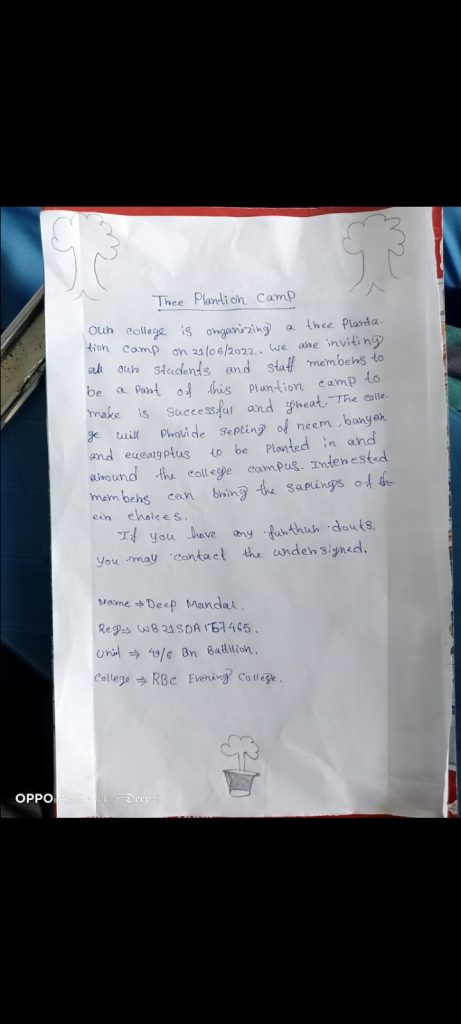 Thee Plantion Camp
Our college is organizing a thee Planta-
tion camp on 21/06/2022. We are inviting
all our students and staff members to
be a Part of this Plantion camp to
make is successful and great. The colle-
ge will Provide sepling of neem, banyan
and eucalyptus to be Planted in and
around the college campus. Interested
members can bring the saplings of th
eir choices.
If you have any furthur douts,
you may contact the undersigned.
Name ⇒ Deep Mandal.
Reg ⇒ WB21SDA157465.
Unit ⇒ 49/6 Bn Battlion.
College ⇒ RBC Evening College.
OPPO A5
Deep